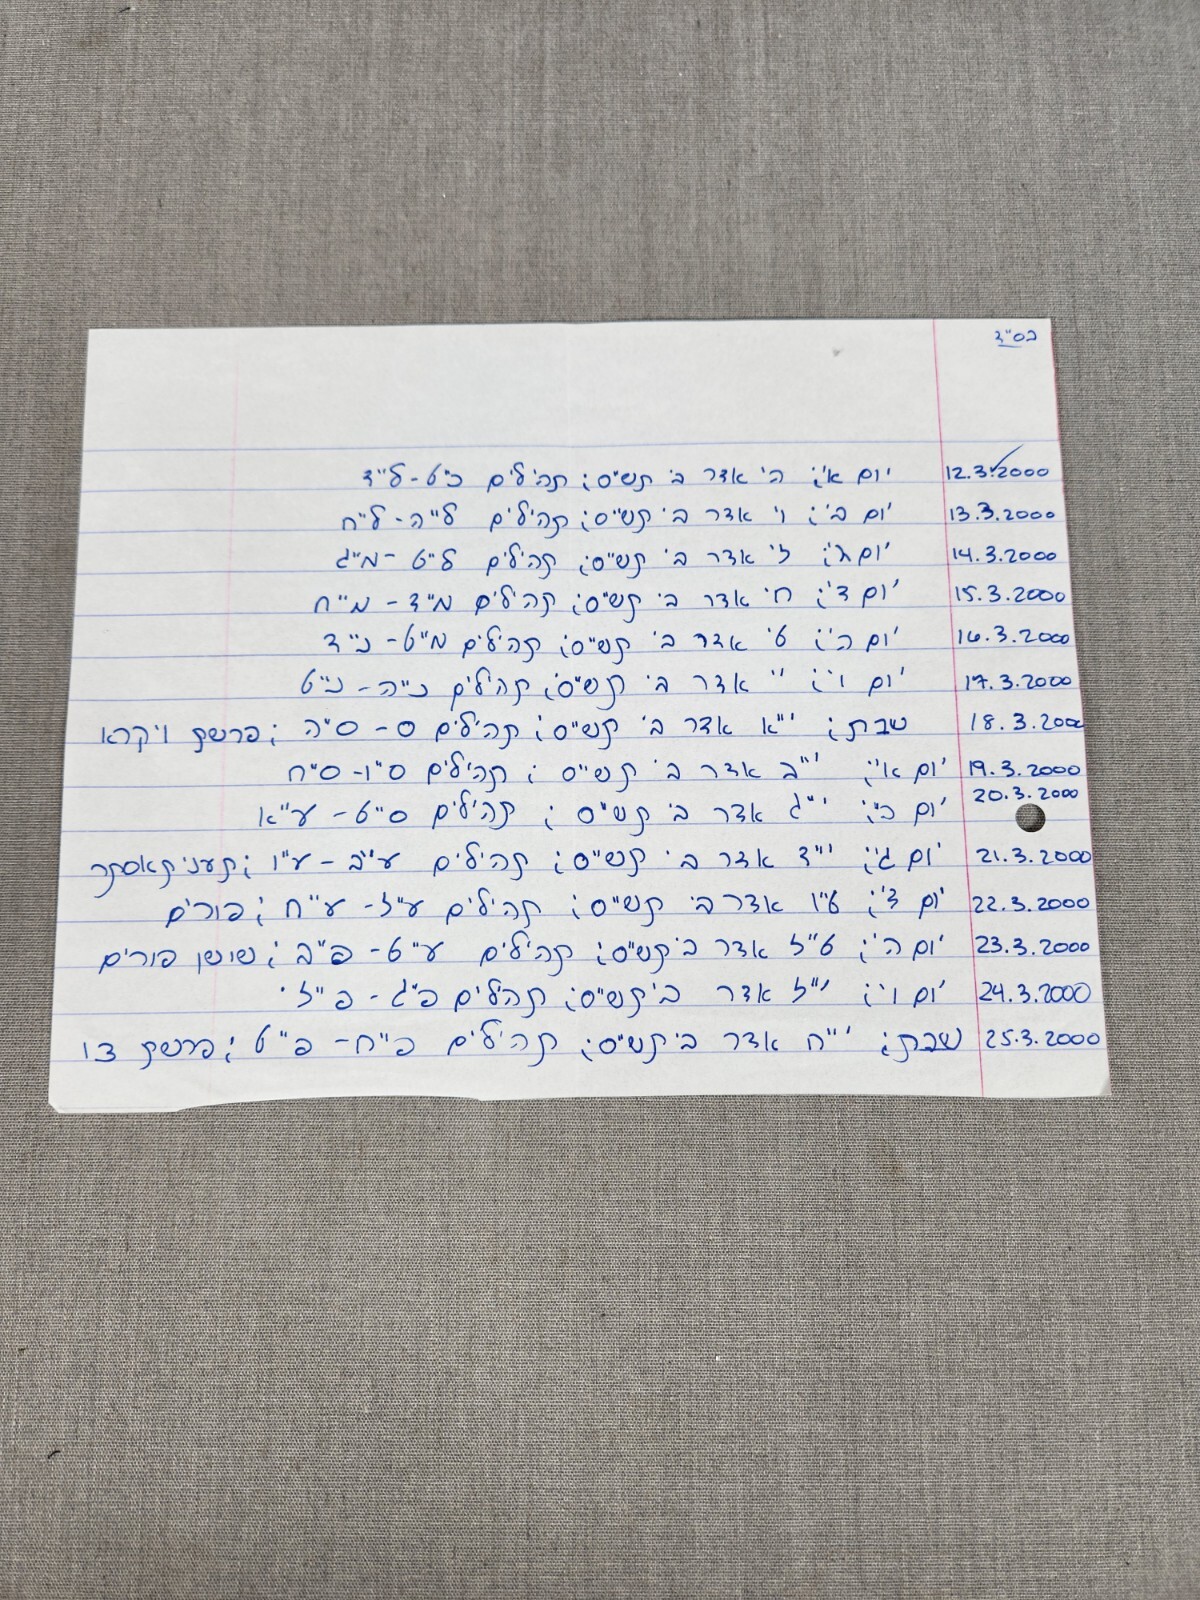 בס"ד
12.3.2000 יום א'; ה' אדר ב' תש"ס; תהילים כ"ט-ל"ד
13.3.2000 יום ב'; ו' אדר ב' תש"ס; תהילים ל"ה-ל"ח
14.3.2000 יום ג'; ז' אדר ב' תש"ס; תהילים ל"ט-מ"ג
15.3.2000 יום ד'; ח' אדר ב' תש"ס; תהילים מ"ד-מ"ח
16.3.2000 יום ה'; ט' אדר ב' תש"ס; תהילים מ"ט-נ"ד
17.3.2000 יום ו'; י' אדר ב' תש"ס; תהילים נ"ה-נ"ט
18.3.2000 שבת; י"א אדר ב' תש"ס; תהילים ס-ס"ה; פרשת ויקרא
19.3.2000 יום א'; י"ב אדר ב' תש"ס; תהילים ס"ו-ס"ח
20.3.2000 יום ב'; י"ג אדר ב' תש"ס; תהילים ס"ט-ע"א
21.3.2000 יום ג'; י"ד אדר ב' תש"ס; תהילים ע"ב-ע"ו; תענית אסתר
22.3.2000 יום ד'; ט"ו אדר ב' תש"ס; תהילים ע"ז-ע"ח; פורים
23.3.2000 יום ה'; ט"ז אדר ב' תש"ס; תהילים ע"ט-פ"ב; שושן פורים
24.3.2000 יום ו'; י"ז אדר ב' תש"ס; תהילים פ"ג-פ"ז.
25.3.2000 שבת; י"ח אדר ב' תש"ס; תהילים פ"ח-פ"ט; פרשת צו